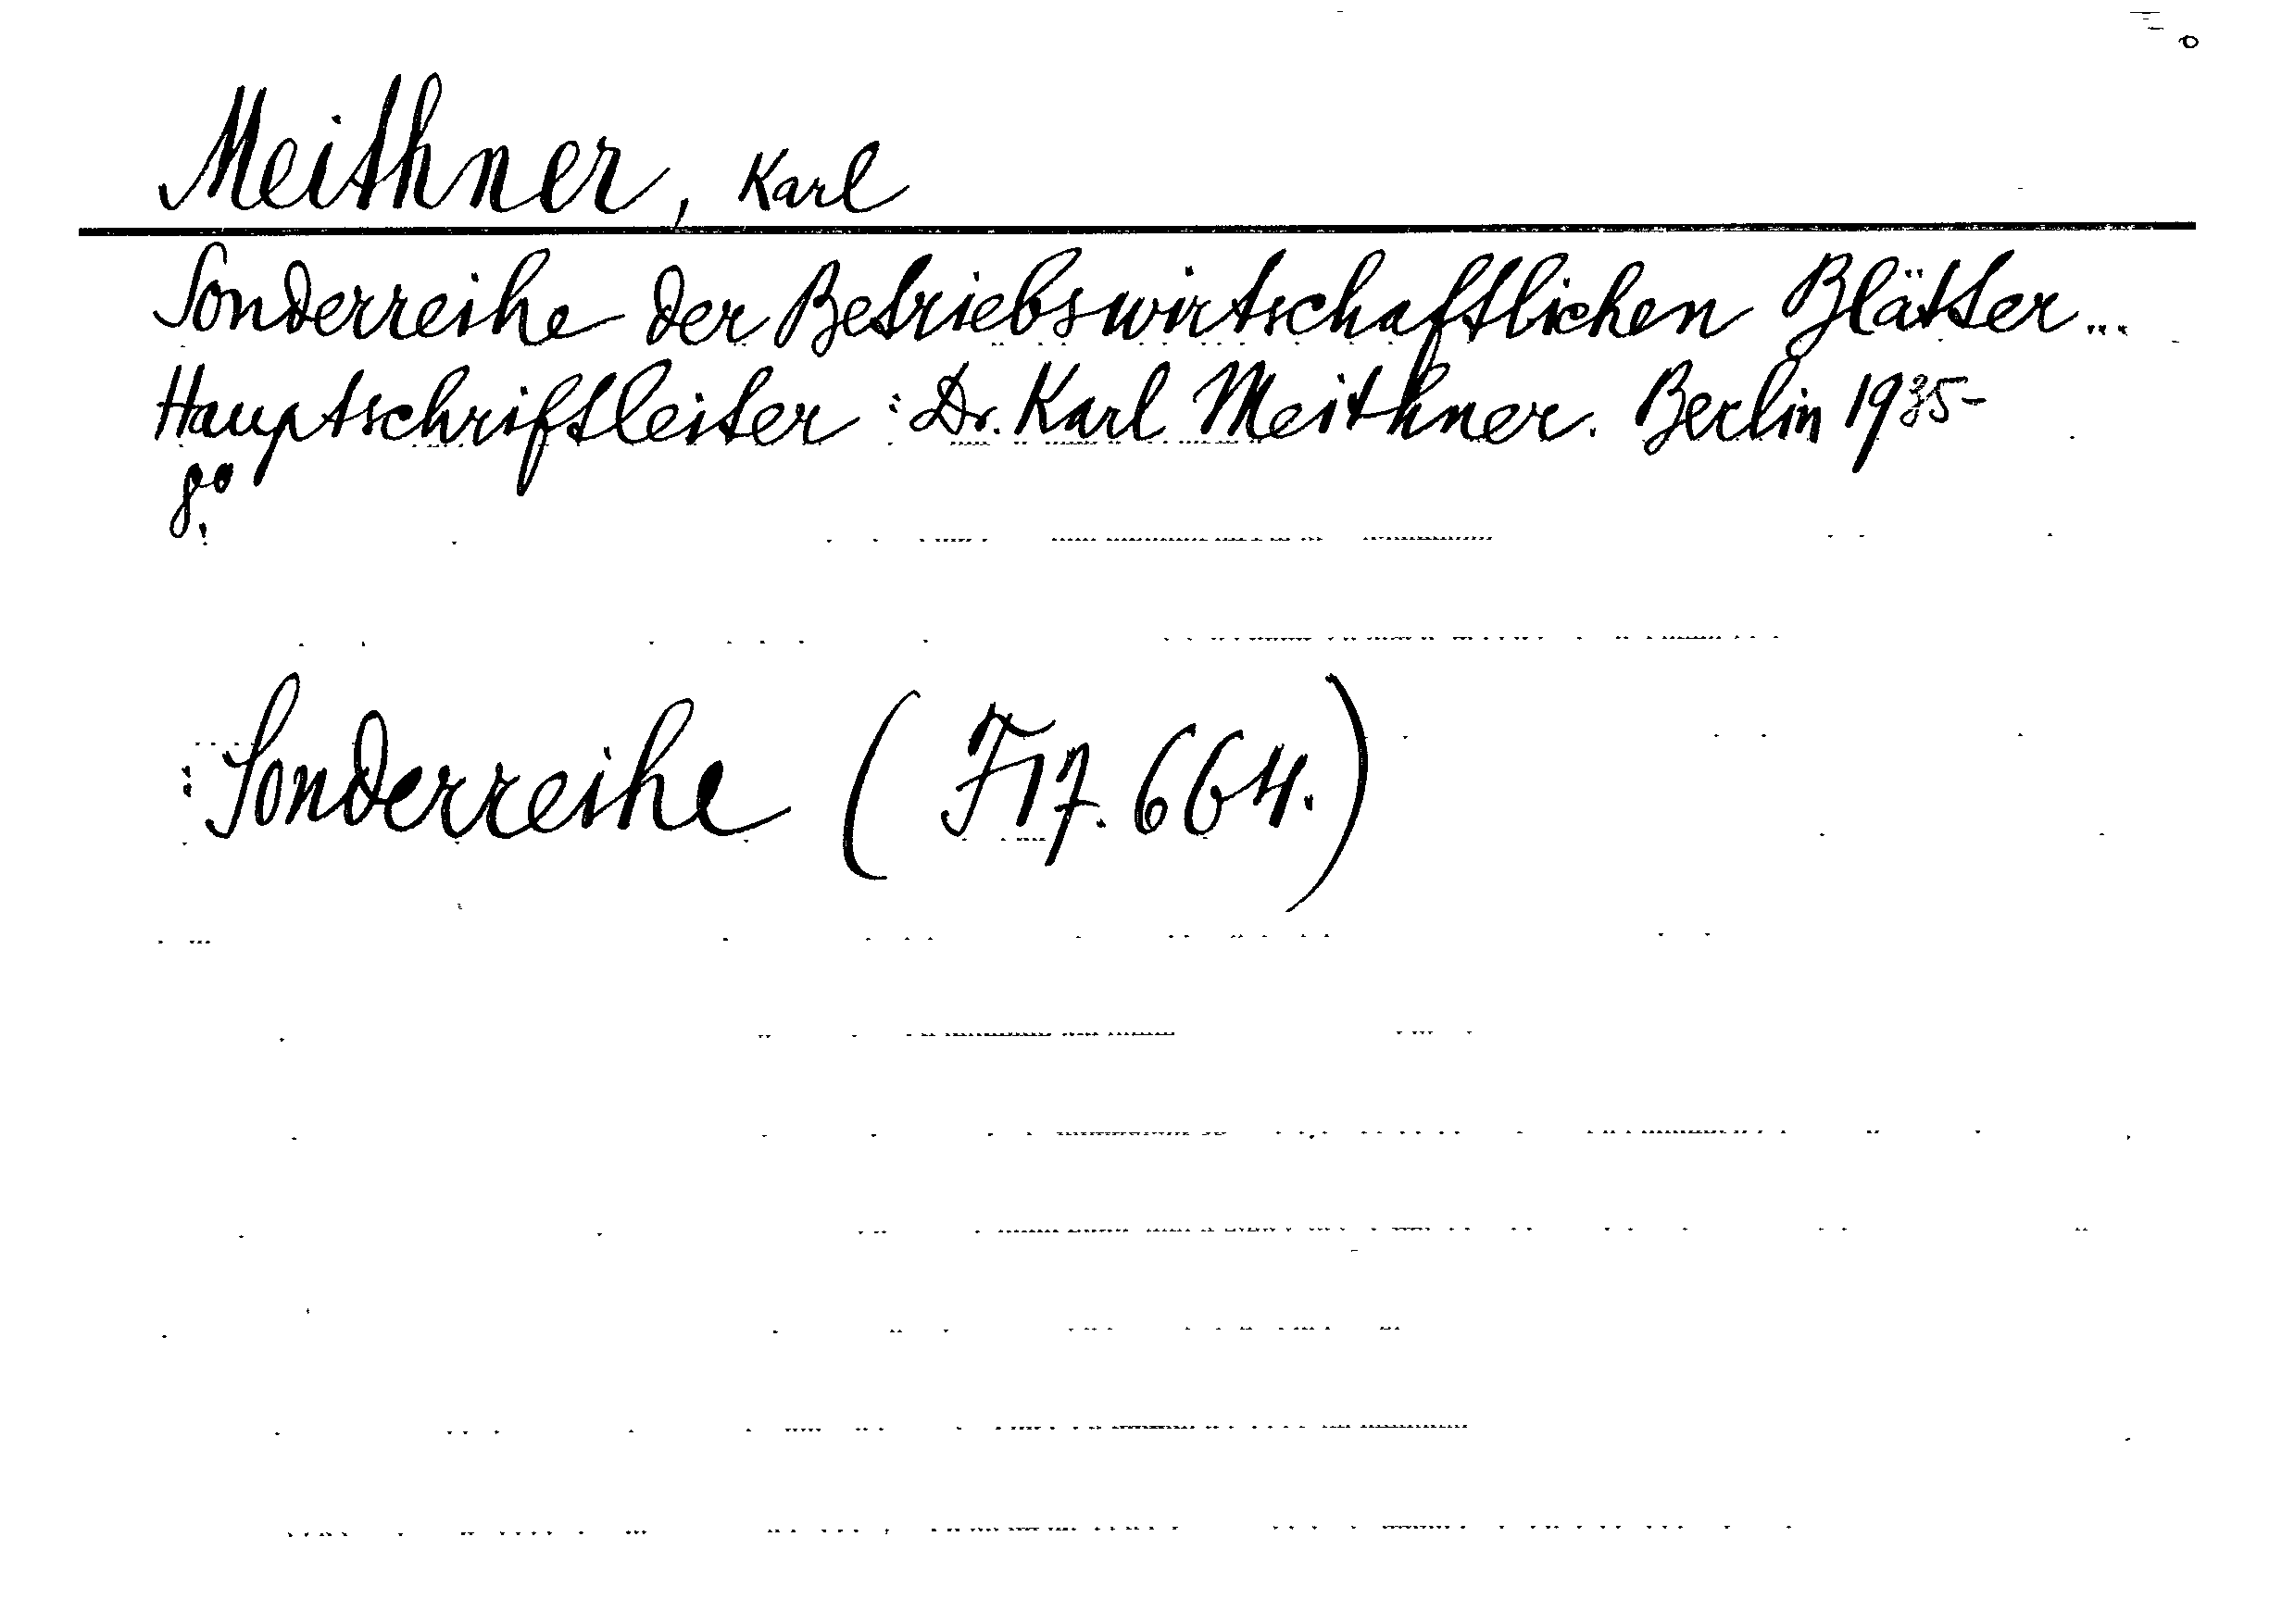 Meithner, Karl
Sonderreihe der Betriebswirtschaftlichen Blätter...
Hauptschriftleiter: Dr. Karl Meithner. Berlin 1935-
8°.
: Sonderreihe (F17.664.)